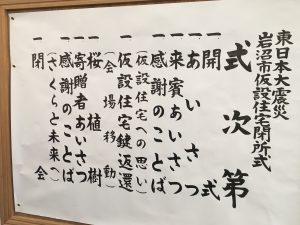 東日本大震災
岩沼市仮設住宅閉所式
式次第
一開式
一あいさつ
一来賓あいさつ
一感謝のことば
(仮設住宅への思い)
一仮設住宅鍵返還
(会場移動)
一桜植樹
一寄贈者あいさつ
一感謝のことば
(さくらと未来へ)
一閉会